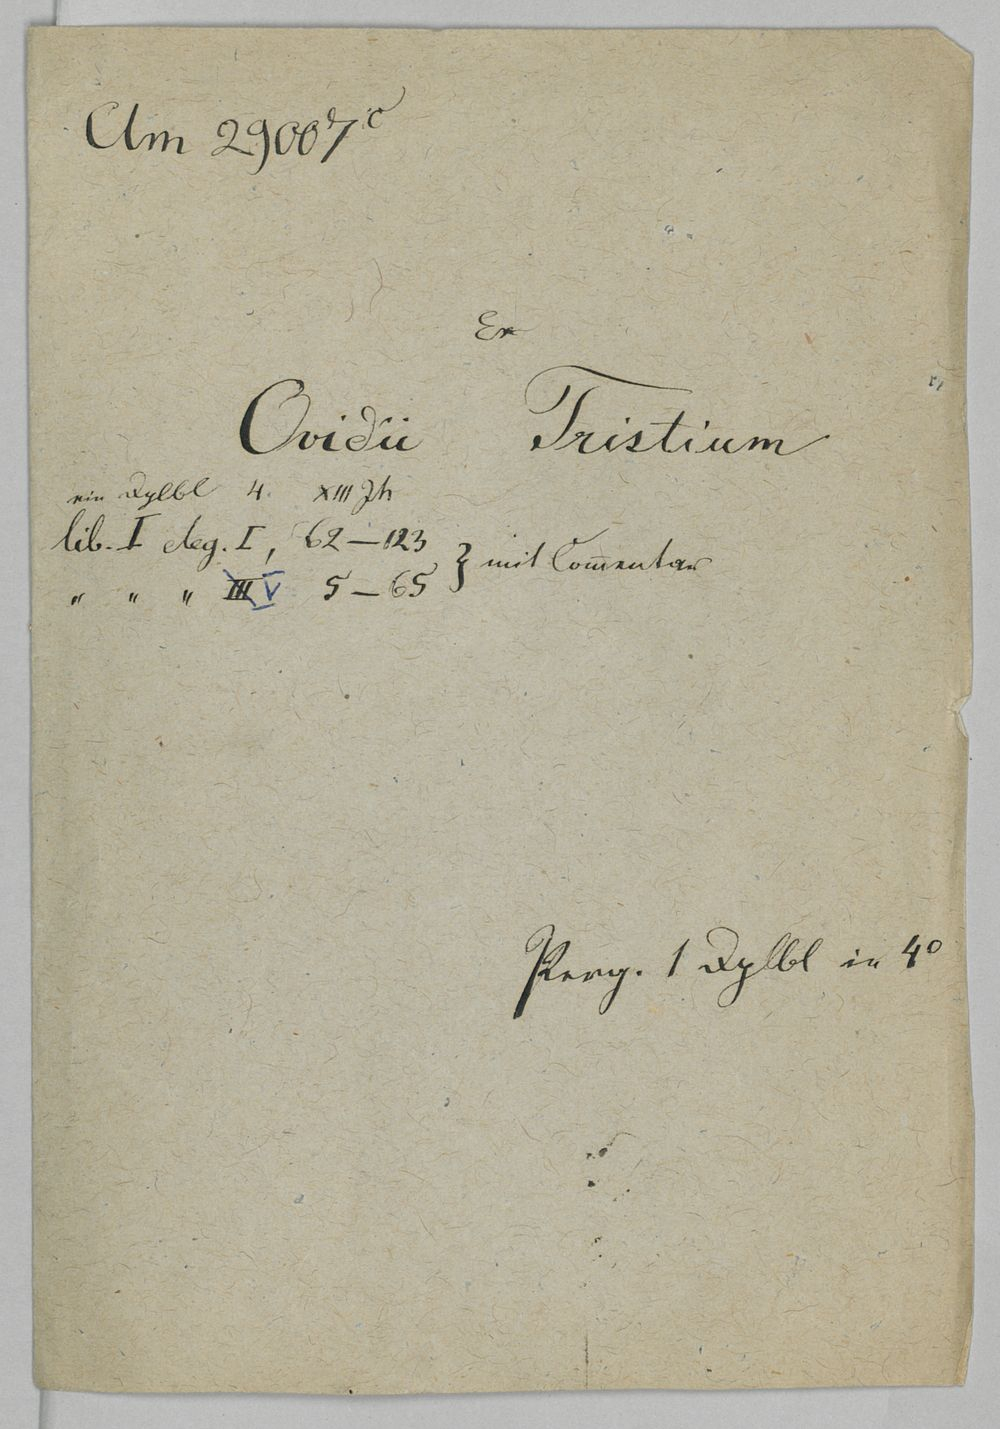 Clm 29007c
Ex
Ovidii Tristium
ein Dplbl 4. XIII Jh
lib. I eleg. I, 62—123
" " " III V 5—65 } mit Com̄entar
Perg. 1 Dplbl in 4°